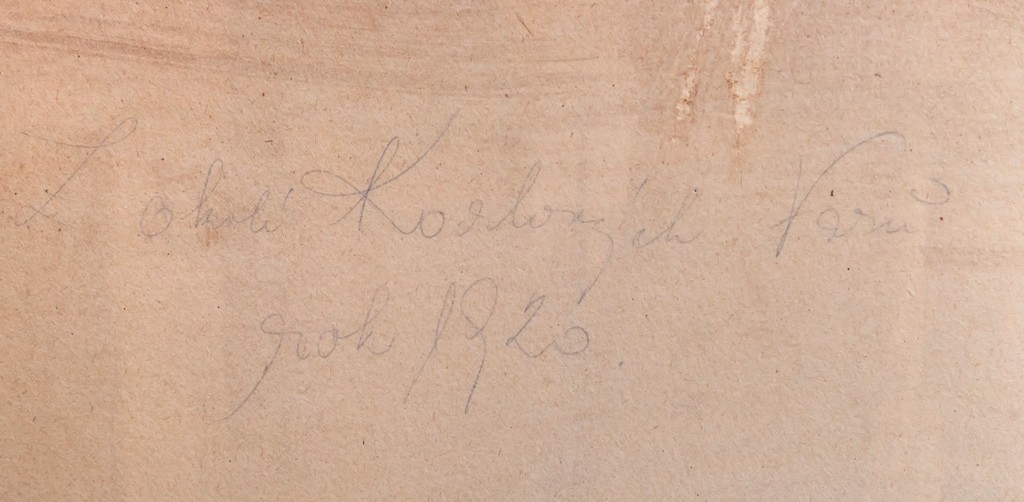 Z okolí Karlových Varů
rok 1920.